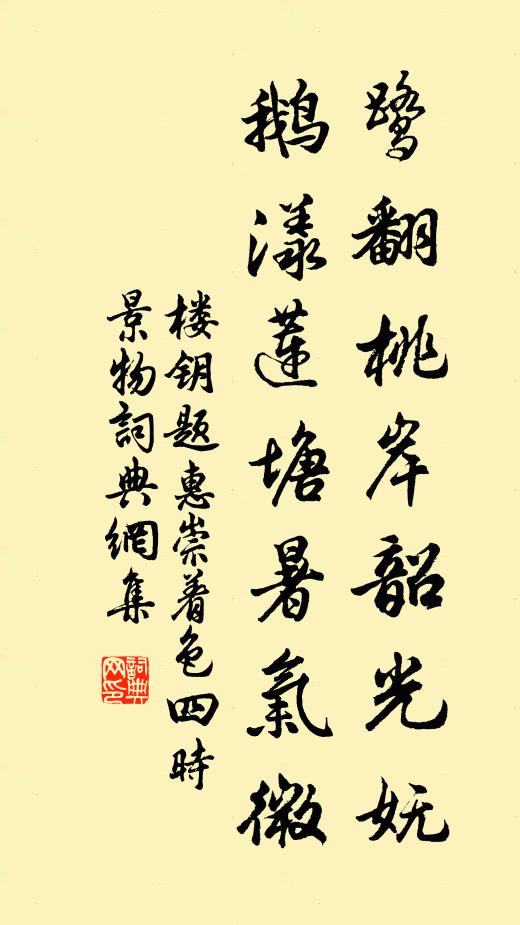 鹭翻桃岸韶光妩
鹅漾莲塘暑氣微
楼钥题惠崇着色四時
景物詞典網集
詞典
网印